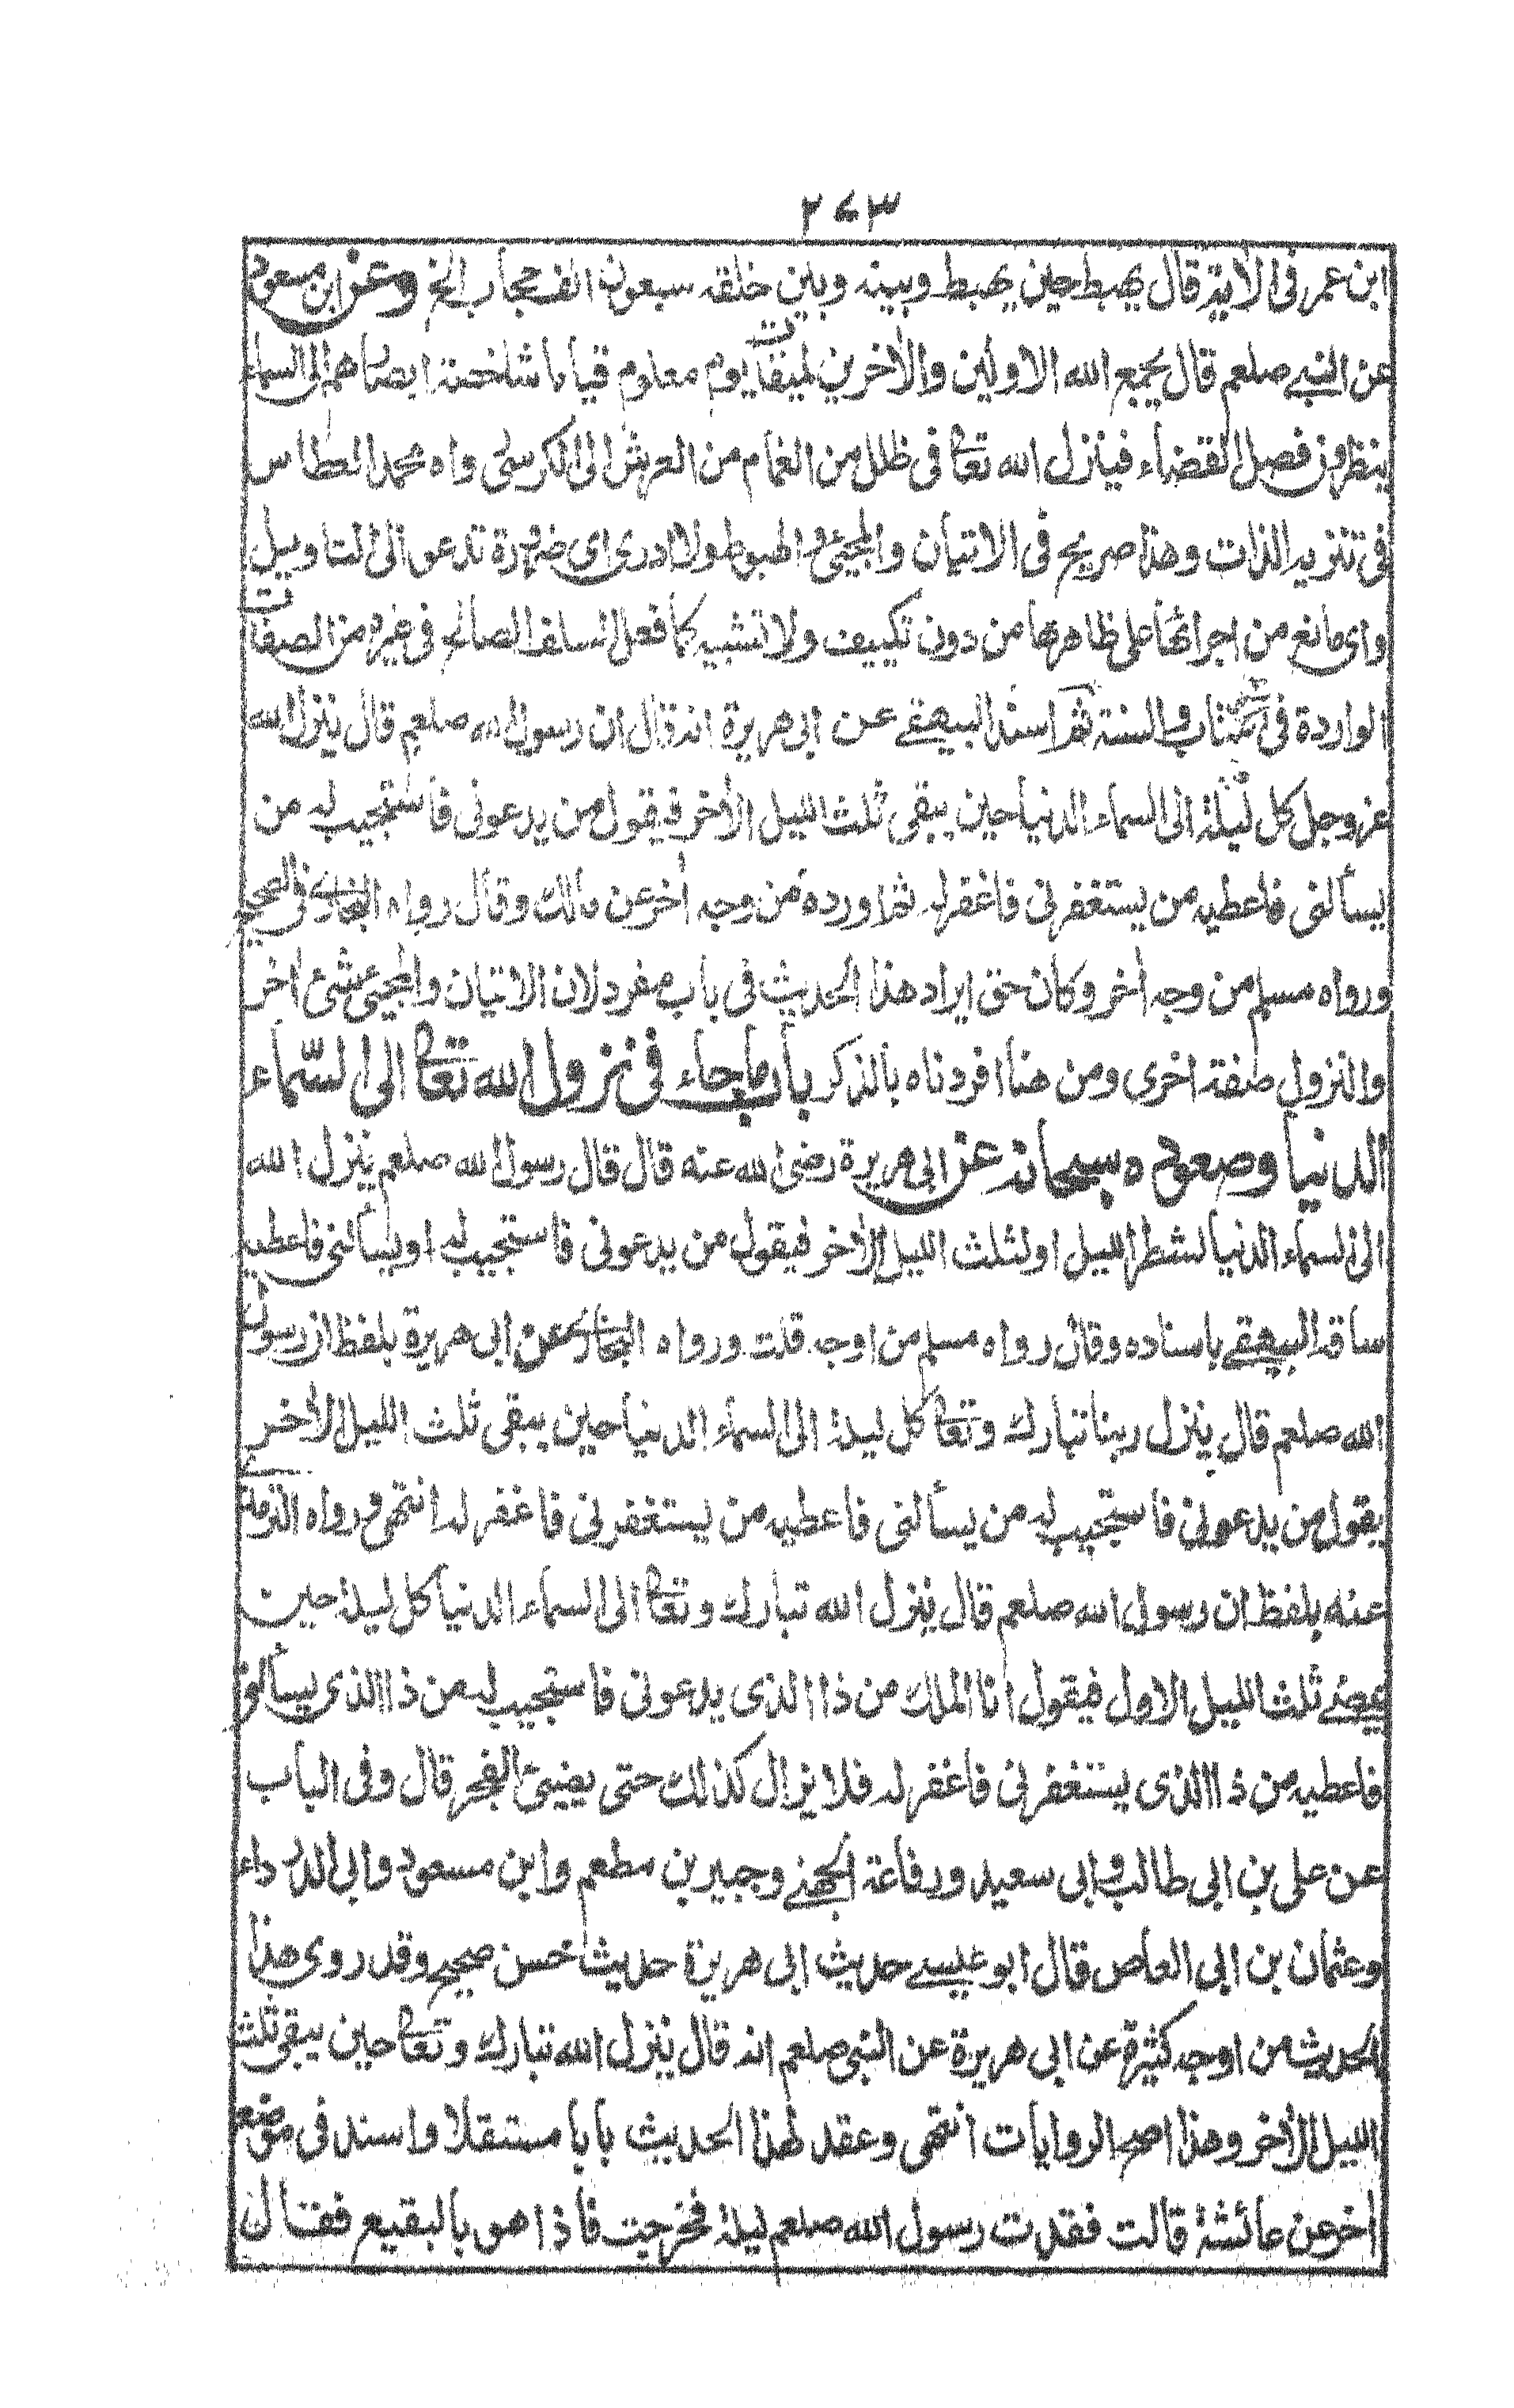 ٢٧٣
ابن عمر في الاية قال يهبط حين يهبط وبينه وبين خلقه سبعون الف حجاب الخ وعن ابن مسعود
عن النبي صلعم قال يجمع الله الاولين والأخرين لميقات يوم معلوم قياما شاخصة ابصارهم الى السماء
ينظرون فصل القضاء فينزل الله تعالى في ظلل من الغمام من العرش الى الكرسي رواه محمد العطاس
في تنزيه الذات وهذا صريح في الاتيان والمجيئ والهبوط ولا ادرى اى ضرورة تدعو الى التاويل
واى مانع من اجرائها على ظاهرها من دون تكييف ولا تشبيه كما فعل السلف الصالح في غيره من الصفات
الواردة في الكتاب والسنة ثم اسند البيهقي عن ابى هريرة انه قال ان رسول الله صلعم قال ينزل الله
عز وجل كل ليلة الى السماء الدنيا حين يبقى ثلث الليل الأخر فيقول من يدعونى فأستجيب له من
يسألنى فاعطيه من يستغفرنى فاغفر له ثم اورده من وجه أخر عن مالك وقال رواه البخارى في الصحيح
ورواه مسلم من وجه أخر وكان حق ايراد هذا الحديث في باب مفرد لان الاتيان والمجيئ شئ أخر
والنزول صفة اخرى ومن هنا افردناه بالذكر باب ما جاء في نزول الله تعالى الى السّماء
الدنيا وصعوده سبحانه عن ابى هريرة رضى الله عنه قال قال رسول الله صلعم ينزل الله
الى السماء الدنيا لشطر الليل او لثلث الليل الأخر فيقول من يدعونى فاستجيب له او يسألنى فاعطيه
ساقه البيهقي باسناده وقال رواه مسلم من اوجه قلت ورواه البخارى عن ابى هريرة بلفظ ان رسول
الله صلعم قال ينزل ربنا تبارك وتعالى كل ليلة الى السماء الدنيا حين يبقى ثلث الليل الأخر
يقول من يدعونى فاستجيب له من يسألنى فاعطيه من يستغفرنى فاغفر له انتهى ورواه الترمذي
عنه بلفظ ان رسول الله صلعم قال ينزل الله تبارك وتعالى الى السماء الدنيا كل ليلة حين
يمضي ثلث الليل الاول فيقول انا الملك من ذا الذى يدعونى فاستجيب له من ذا الذى يسألنى
فاعطيه من ذا الذى يستغفرنى فاغفر له فلا يزال كذلك حتى يضيئ الفجر قال وفى الباب
عن على بن ابى طالب وابى سعيد ورفاعة الجهني وجبير بن مطعم وابن مسعود وابى الدرداء
وعثمان بن ابى العاص قال ابو عيسى حديث ابى هريرة حديث حسن صحيح وقد روى هذا
الحديث من اوجه كثيرة عن ابى هريرة عن النبى صلعم انه قال ينزل الله تبارك وتعالى حين يبقى ثلث
الليل الأخر وهذا اصح الروايات انتهى وعقد لهذا الحديث بابا مستقلا واسند في موضع
أخر عن عائشة قالت فقدت رسول الله صلعم ليلة فخرجت فاذا هو بالبقيع فقال